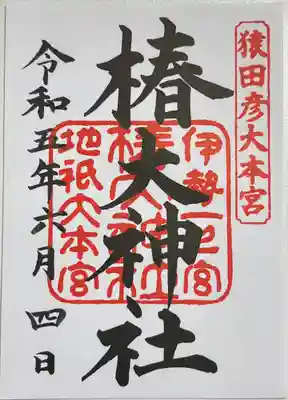 猿田彦大本宮
椿大神社
伊勢一之宮
椿大神社
地祇大本宮
令和五年六月四日